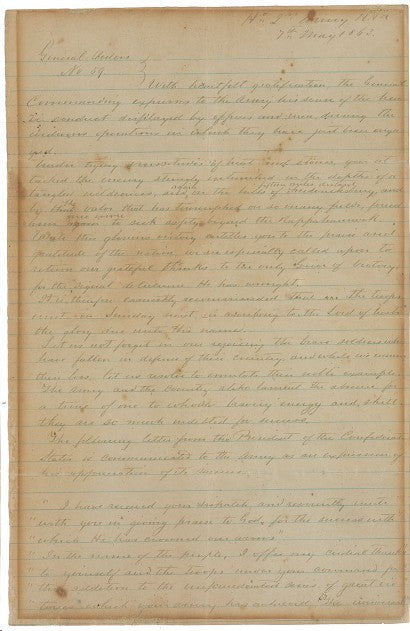 Hd. Qrs. Army N.Va
7th May 1863.
General Orders
No 59
With heartfelt gratification the General
Commanding expresses to the Army his sense of the heroic
conduct displayed by officers and men, during the
arduous operations in which they have just been enga
ged.
Under trying vicissitudes of heat and storm, you at
tacked the enemy strongly intrenched in the depths of a
tangled wilderness, and again on the hills of Fredericksburg, fifteen miles distant, and
by the valor that has triumphed on so many fields, forced
him once more to seek safety beyond the Rappahannock.
While this glorious victory entitles you to the praise and
gratitude of the nation, we are especially called upon to
return our grateful thanks to the only Giver of Victory,
for the signal deliverance He has wrought.
It is therefore earnestly recommended that the troops
unite on Sunday next in ascribing to the Lord of hosts
the glory due unto His name.
Let us not forget in our rejoicing the brave soldiers who
have fallen in defence of their Country, and while we mourn
their loss, let us resolve to emulate their noble example.
The Army and the Country alike lament the absence for
a time of one to whose bravery energy and skill
they are so much indebted for success.
The following letter from the President of the Confederate
States is communicated to the Army as an expression of
his appreciation of its success.
"I have received your dispatch and reverently unite
"with you in giving praise to God, for the success with
"which He has crowned our arms"
"In the name of the people, I offer my cordial thanks
"to yourself and the troops under your command for
"this addition to the unprecedented series of great vic
"tories which your army has achieved. The universal